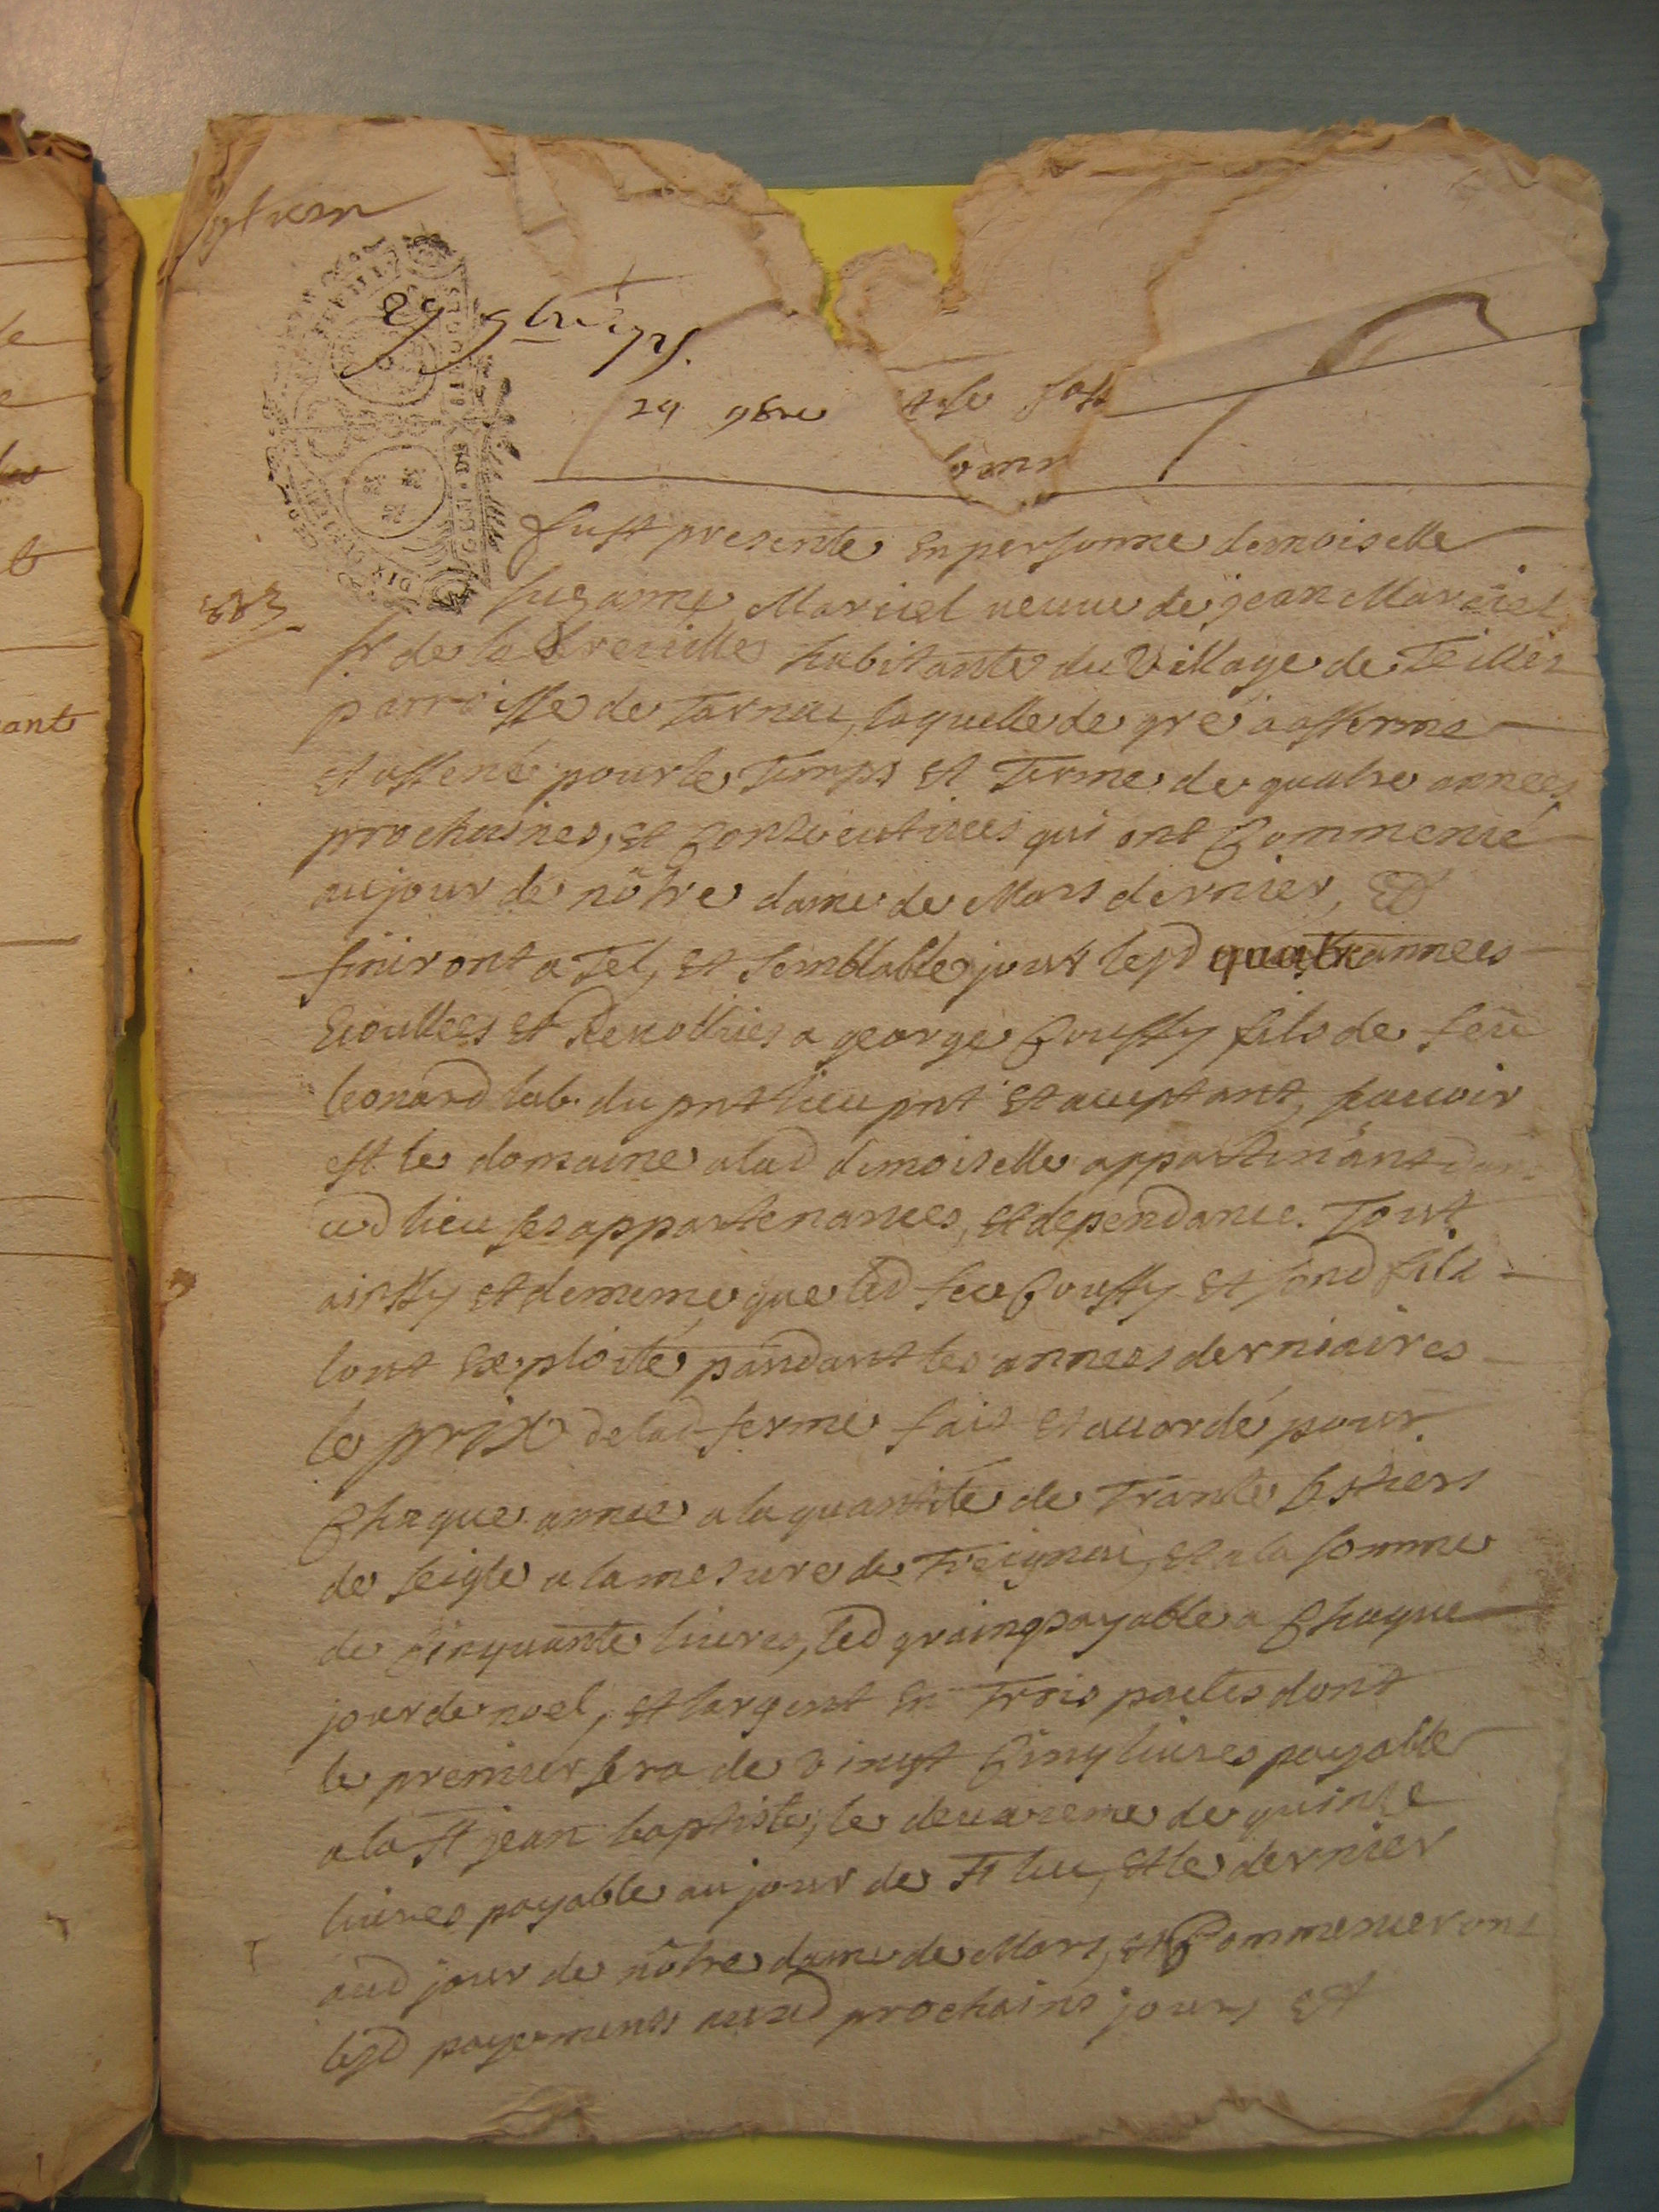 29 9bre
29 9bre
fust presente en personne demoiselle
Suzanne Marciel veuve de jean Marciel
sr de la habitante du Village de Teillis
parroisse de Tarnac, laquelle de gré a afferme
et assencé pour le Temps et Terme de quatre annees
prochaines, et Consecutives qui ont Commencé
au jour de nôtre dame de Mars dernier, Et
finiront a Tel, et semblable jour lesd quatre annees
Ecoullees et Revollues a george Coussy fils de feu
leonard lab. du pnt lieu pnt et acceptant, scavoir
est le domaine a lad demoiselle appartenant dans
ced lieu ses appartenances, et dependance. Tout
ainssy et de meme que led feu Coussy et sond fils
lont Exploité pandant les annees derniaires
le prix de lad ferme fait et accordé pour
Chaque annee a la quantité de Trante sestiers
de seigle a la mesure de Treignac, et a la somme
de Cinquante livres, led graing payable a Chaque
jour de noel, et largent en Trois pactes dont
le premier sera de Vingt Cinq livres payable
a la st jean baptiste, le deuxieme de quinse
livres payable au jour de st luc, et le dernier
aud jour de nôtre dame de Mars, et Commenceront
lesd payements auxd prochains jours Et